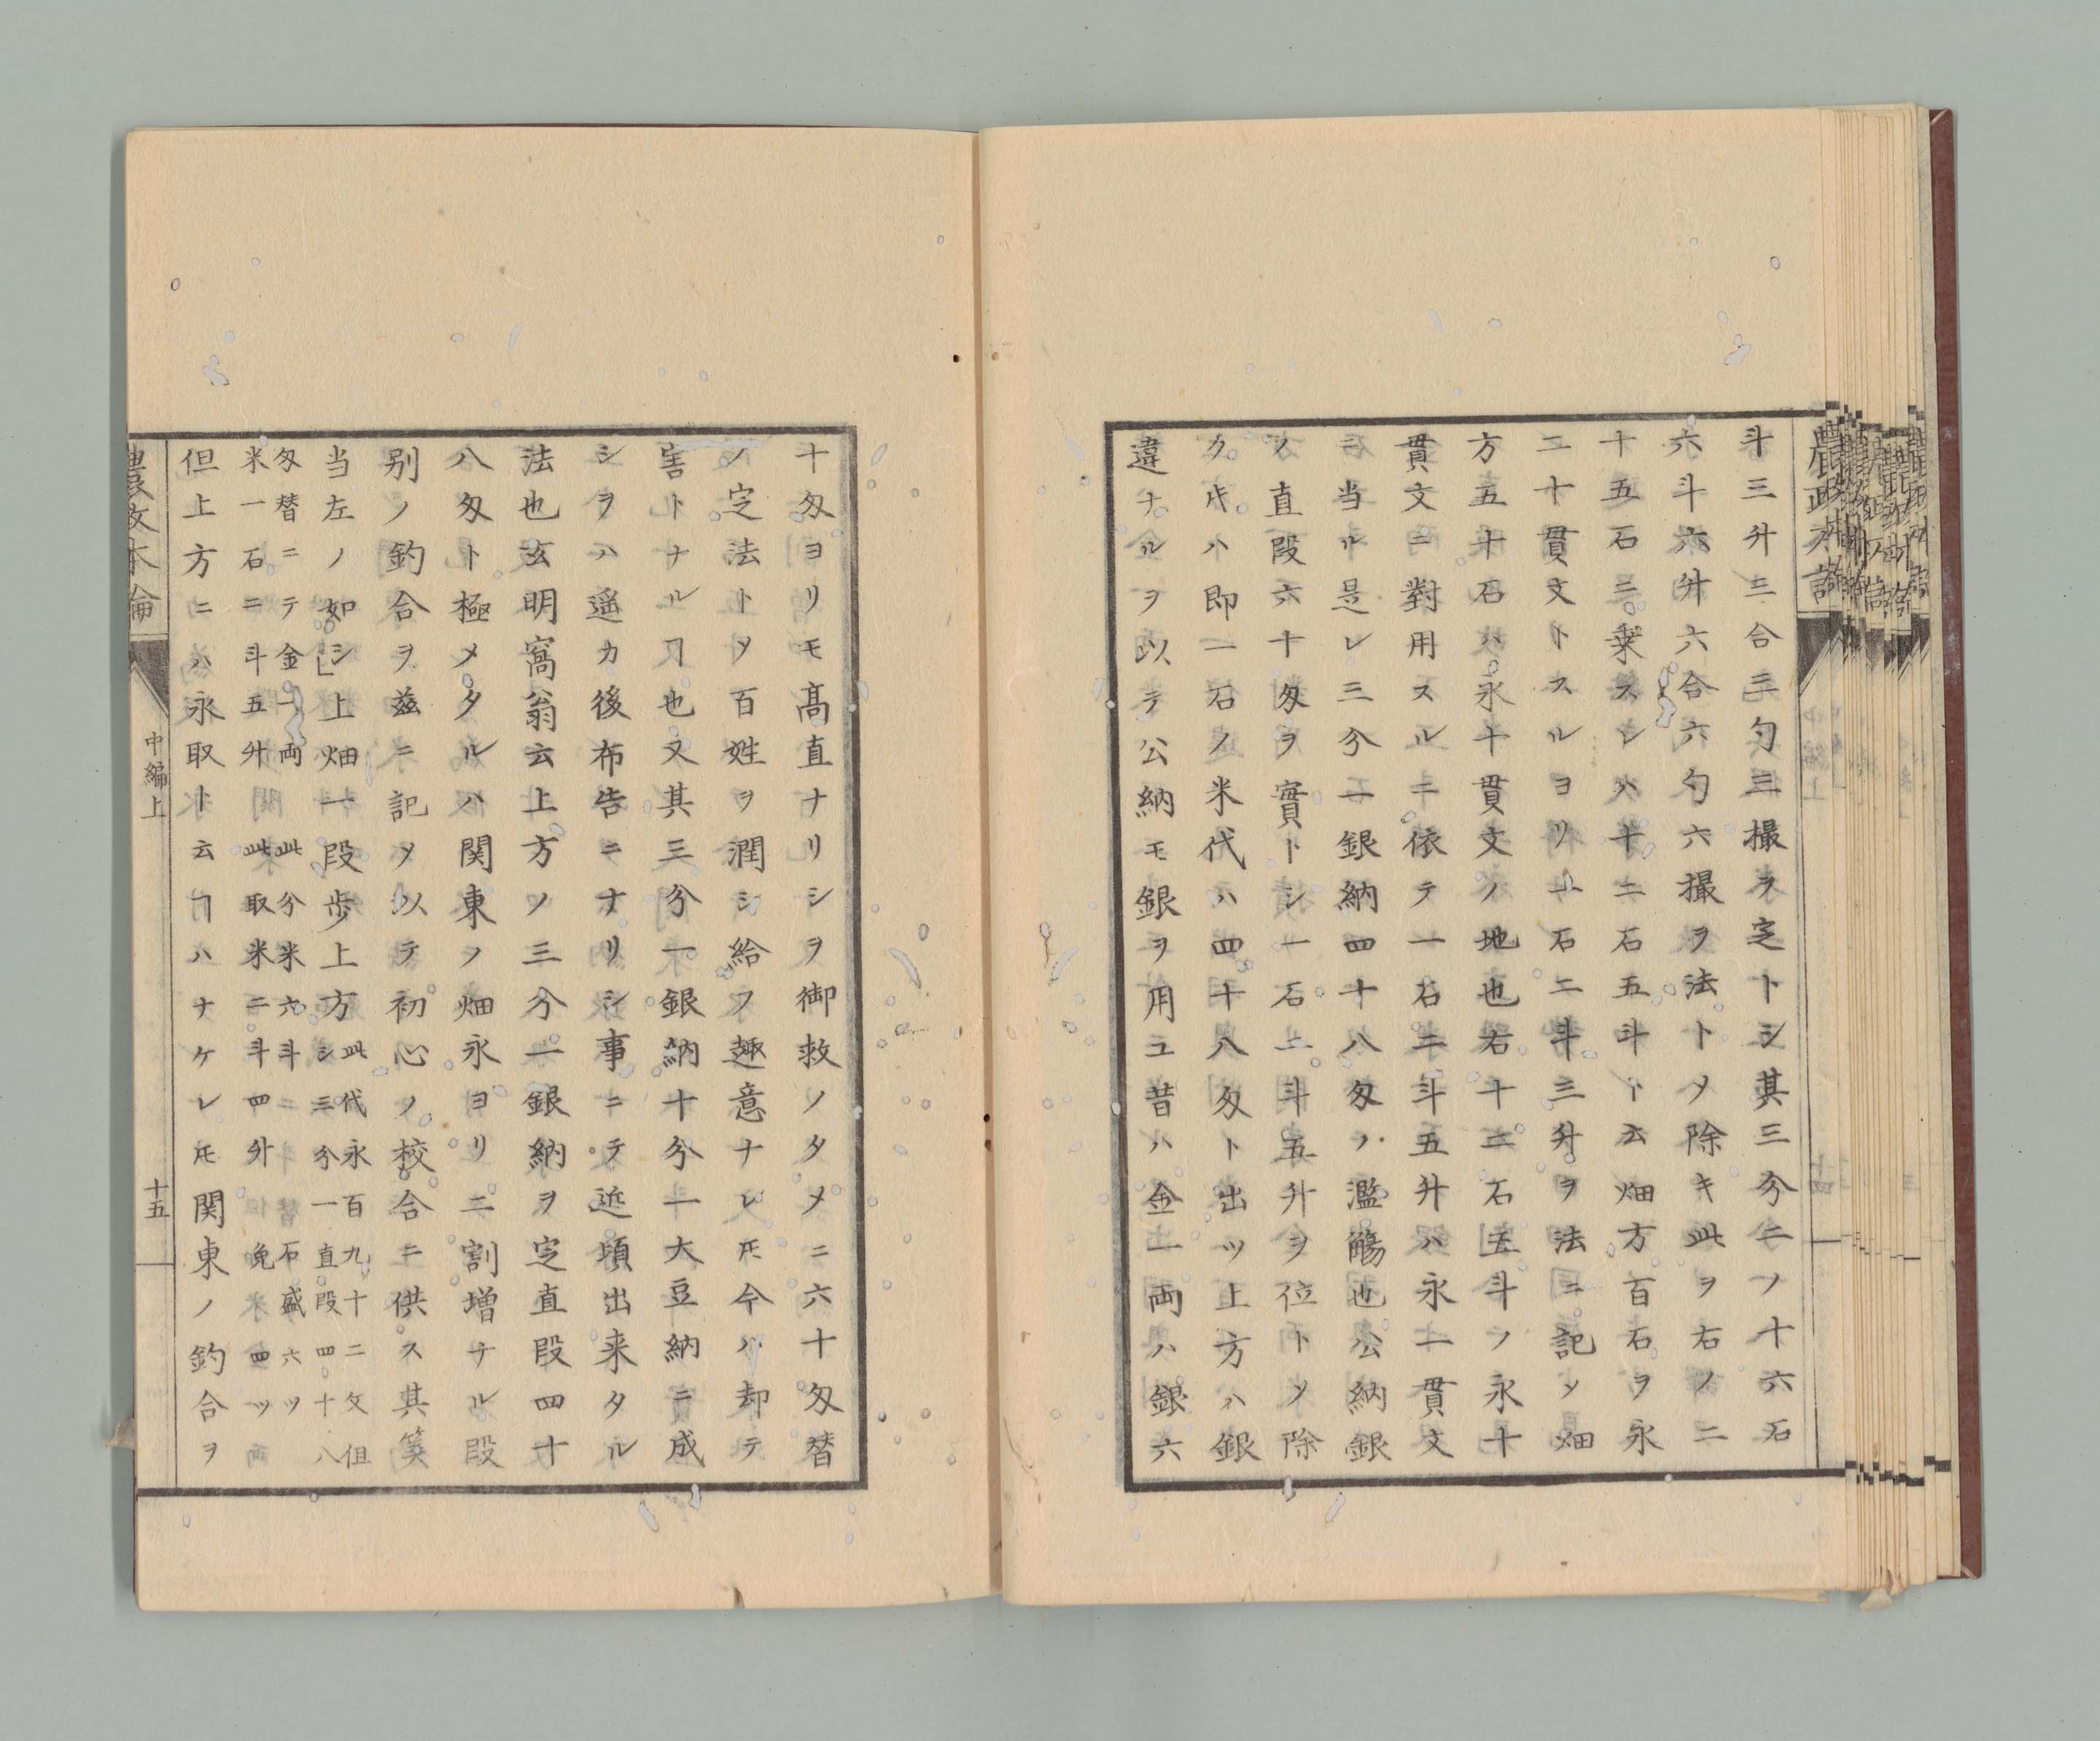 斗三升三合三勺三撮ヲ定トシ其三分二ノ十六石
六斗六升六合六勺六撮ヲ法トメ除キ此ヲ右ノ二
十五石ニ乗スレハ十二石五斗ト云畑方百石ヲ永
二十貫文トスルヨリ一石二斗三升ヲ法ニ記ソ畑
方五十石ハ永十貫文ノ地也右十二石五斗ノ永十
貫文ニ對用スルニ依テ一石二斗五升ハ永一貫文
ニ当ル是レ三分一銀納四十八匁ノ濫觴也公納銀
ノ直段六十匁ヲ實トシ一石二斗五升ヲ位トソ除
クキハ即一石ノ米代ハ四十八匁ト出ツ上方ハ銀
違ナルヲ以テ公納モ銀ヲ用ユ昔ハ金一両ハ銀六
十匁ヨリモ高直ナリシヲ御救ノタメニ六十匁替
ノ定法トメ百姓ヲ潤シ給フ趣意ナレ𪜈今ハ却テ
害トナルヿ也又其三分一銀納十分一大豆納ニ成
シヲハ遥カ後布告ニナリシ事ニテ近頃出来タル
法也玄明窩翁云上方ノ三分一銀納ヲ定直段四十
八匁ト極メタルハ関東ノ畑永ヨリ二割増ナル段
別ノ釣合ヲ茲ニ記メ以テ初心ノ校合ニ供ス其筭
当左ノ如シ」上畑一段歩上方此代永百九十二文但
シ三分一直段四十八
匁替ニテ金一両此分米六斗二替石盛六ツ
米一石二斗五升此取米二斗四升免四ツ
但上方ニハ永取ト云ヿハナケレ𪜈関東ノ釣合ヲ
農政本論
中編上
十五